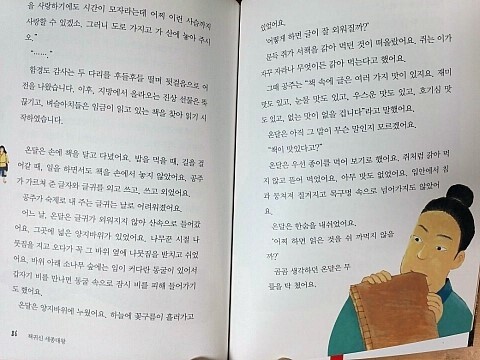 을 사랑하기에도 시간이 모자라는데 어찌 이런 사슴까지
사랑할 수 있겠소. 그러니 도로 가지고 가 산에 놓아 주시
오."
"……."
함경도 감사는 두 다리를 후들후들 떨며 뒷걸음으로 어
전을 나왔습니다. 이후, 지방에서 올라오는 진상 선물은 뚝
끊기고, 벼슬아치들은 임금이 읽고 있는 책을 찾아 읽기 시
작하였습니다.
온달은 손에 책을 달고 다녔어요. 밥을 먹을 때, 길을 걸
어갈 때, 일을 하면서도 책을 손에서 놓지 않았어요. 공주
가 가르쳐 준 글자와 글귀를 외고 쓰고, 쓰고 외었어요.
공주가 숙제로 내 주는 글귀는 날로 어려워졌어요.
어느 날, 온달은 글귀가 외워지지 않아 산속으로 들어갔
어요. 그곳에 넓은 양지바위가 있었어요. 나무꾼 시절 나
뭇짐을 지고 오다가 꼭 그 바위 옆에 나뭇짐을 받치고 쉬었
어요. 바위 아래 소나무 숲에는 입이 커다란 동굴이 있어서
갑자기 비를 만나면 동굴 속으로 잠시 비를 피해 들어가기
도 했어요.
온달은 양지바위에 누웠어요. 하늘에 꽃구름이 흘러가고
86 책귀신 세종대왕
있었어요.
'어떻게 하면 글이 잘 외워질까?'
문득 쥐가 서책을 갉아 먹던 것이 떠올랐어요. 쥐는 이가
자꾸 자라나 무엇이든 갉아 먹는다고 했어요.
그때 공주는 "책 속에 글은 여러 가지 맛이 있지요. 재미
맛도 있고, 눈물 맛도 있고, 우스운 맛도 있고, 호기심 맛
도 있고, 없는 맛이 없을 겁니다."라고 말했어요.
온달은 아직 그 말이 무슨 말인지 모르겠어요.
"책이 맛있다고?"
온달은 우선 종이를 먹어 보기로 했어요. 쥐처럼 갉아 먹
지 않고 뜯어 먹었어요. 아무 맛도 없었어요. 입안에서 침
과 뭉쳐져 질겨지고 목구멍 속으로 넘어가지도 않았어
요.
온달은 한숨을 내쉬었어요.
'어찌 하면 읽은 것을 쉬 까먹지 않을
까?'
곰곰 생각하던 온달은 무
릎을 탁 쳤어요.